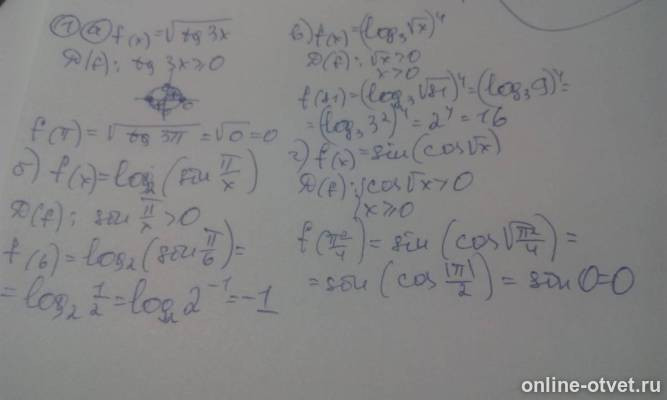 1 а) f(x) = √(tg 3x)
D(f): tg 3x ≥ 0
f(π) = √(tg 3π) = √0 = 0
б) f(x) = log₂(sin π/x)
D(f): sin π/x > 0
f(6) = log₂(sin π/6) =
= log₂ 1/2 = log₂ 2⁻¹ = -1
в) f(x) = (log₃ √x)⁴
D(f): √x > 0
x > 0
f(81) = (log₃ √81)⁴ = (log₃ 9)⁴ =
= (log₃ 3²)⁴ = 2⁴ = 16
г) f(x) = sin(cos √x)
D(f): { cos √x > 0
x ≥ 0
f(π²/4) = sin(cos √(π²/4)) =
= sin(cos |π|/2) = sin 0 = 0
online-otvet.ru